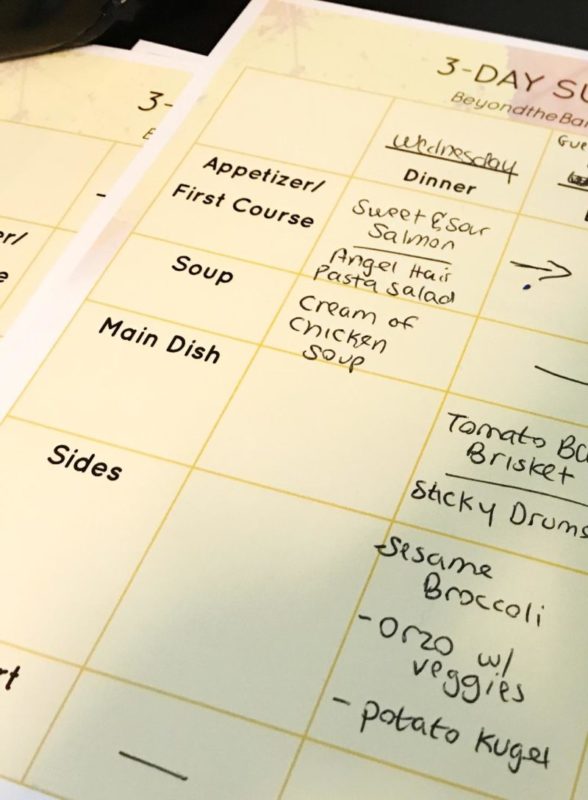 3-DAY SU
BeyondtheBa
3-
Wednesday
Dinner
Gue
Appetizer/
First Course
Sweet & Sour
Salmon
Angel Hair
Pasta Salad
Soup
Cream of
Chicken
Soup
Main Dish
Tomato
Brisket
Sticky Drums
Sides
-Sesame
Broccoli
- Orzo w/
veggies
- potato kugel
er/
e
rt